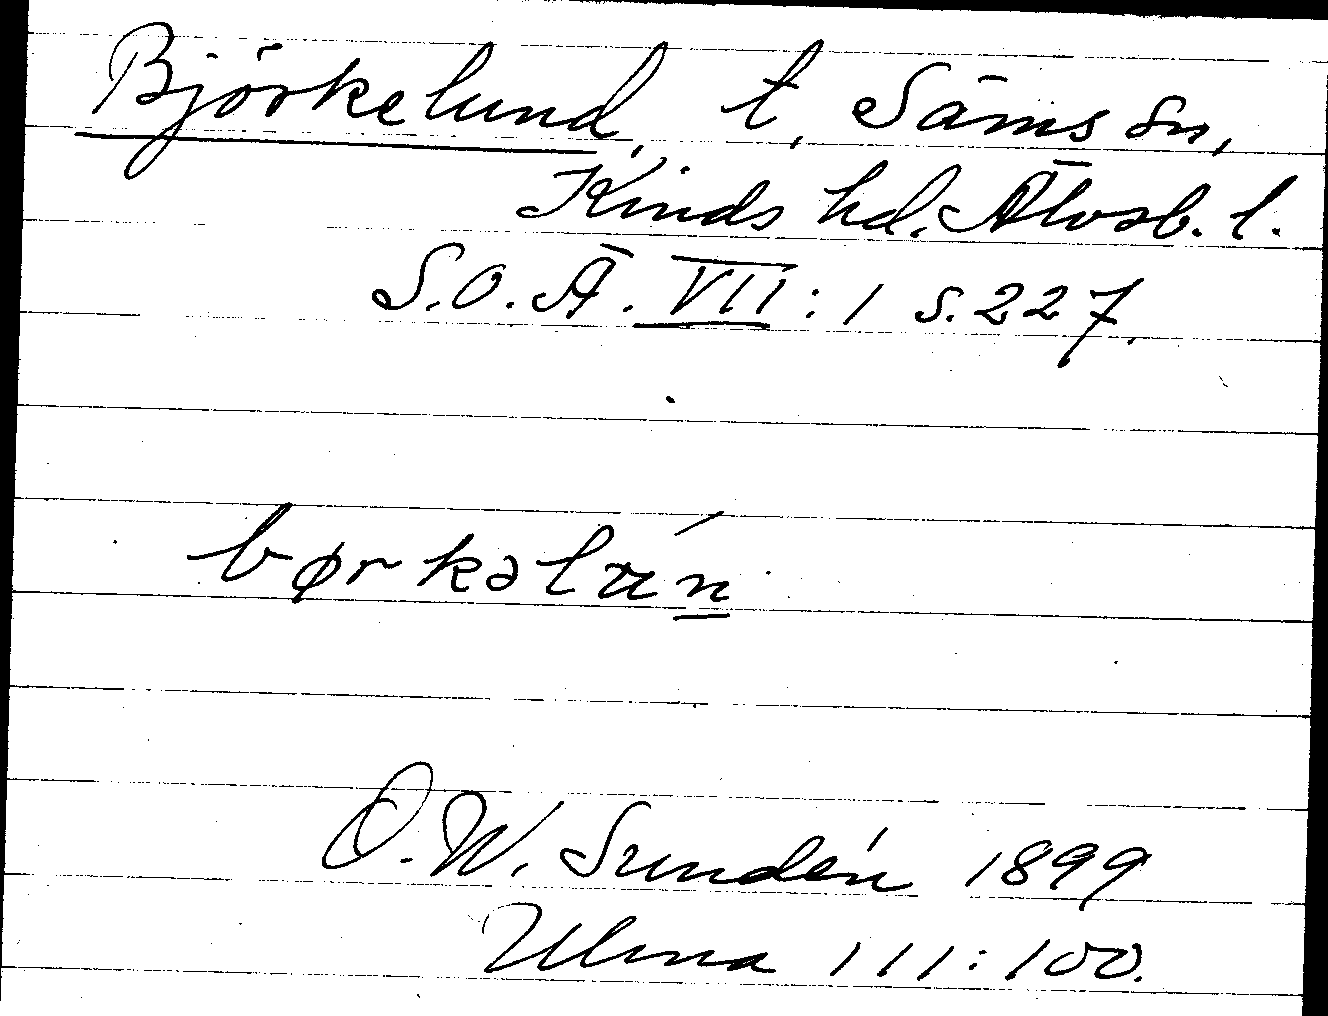 Björkelund, t, Säms sn,
Kinds hd. Älvsb. l.
S.O.Ä. VII : 1 s. 227.
børkəlún
D. W. Sundén 1899
Ulma 111:100.